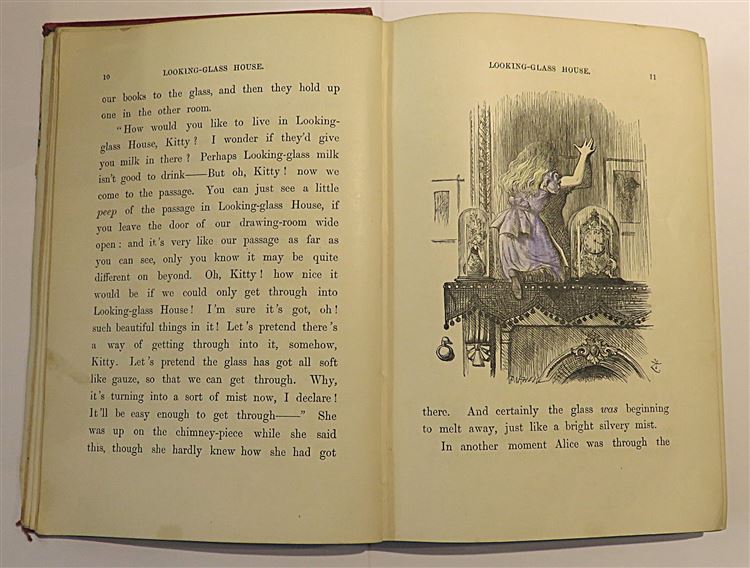 10
LOOKING-GLASS HOUSE.
our books to the glass, and then they hold up
one in the other room.
"How would you like to live in Looking-
glass House, Kitty? I wonder if they'd give
you milk in there? Perhaps Looking-glass milk
isn't good to drink——But oh, Kitty! now we
come to the passage. You can just see a little
peep of the passage in Looking-glass House, if
you leave the door of our drawing-room wide
open: and it's very like our passage as far as
you can see, only you know it may be quite
different on beyond. Oh, Kitty! how nice it
would be if we could only get through into
Looking-glass House! I'm sure it's got, oh!
such beautiful things in it! Let's pretend there's
a way of getting through into it, somehow,
Kitty. Let's pretend the glass has got all soft
like gauze, so that we can get through. Why,
it's turning into a sort of mist now, I declare!
It'll be easy enough to get through——" She
was up on the chimney-piece while she said
this, though she hardly knew how she had got
LOOKING-GLASS HOUSE.
11
there. And certainly the glass was beginning
to melt away, just like a bright silvery mist.
In another moment Alice was through the